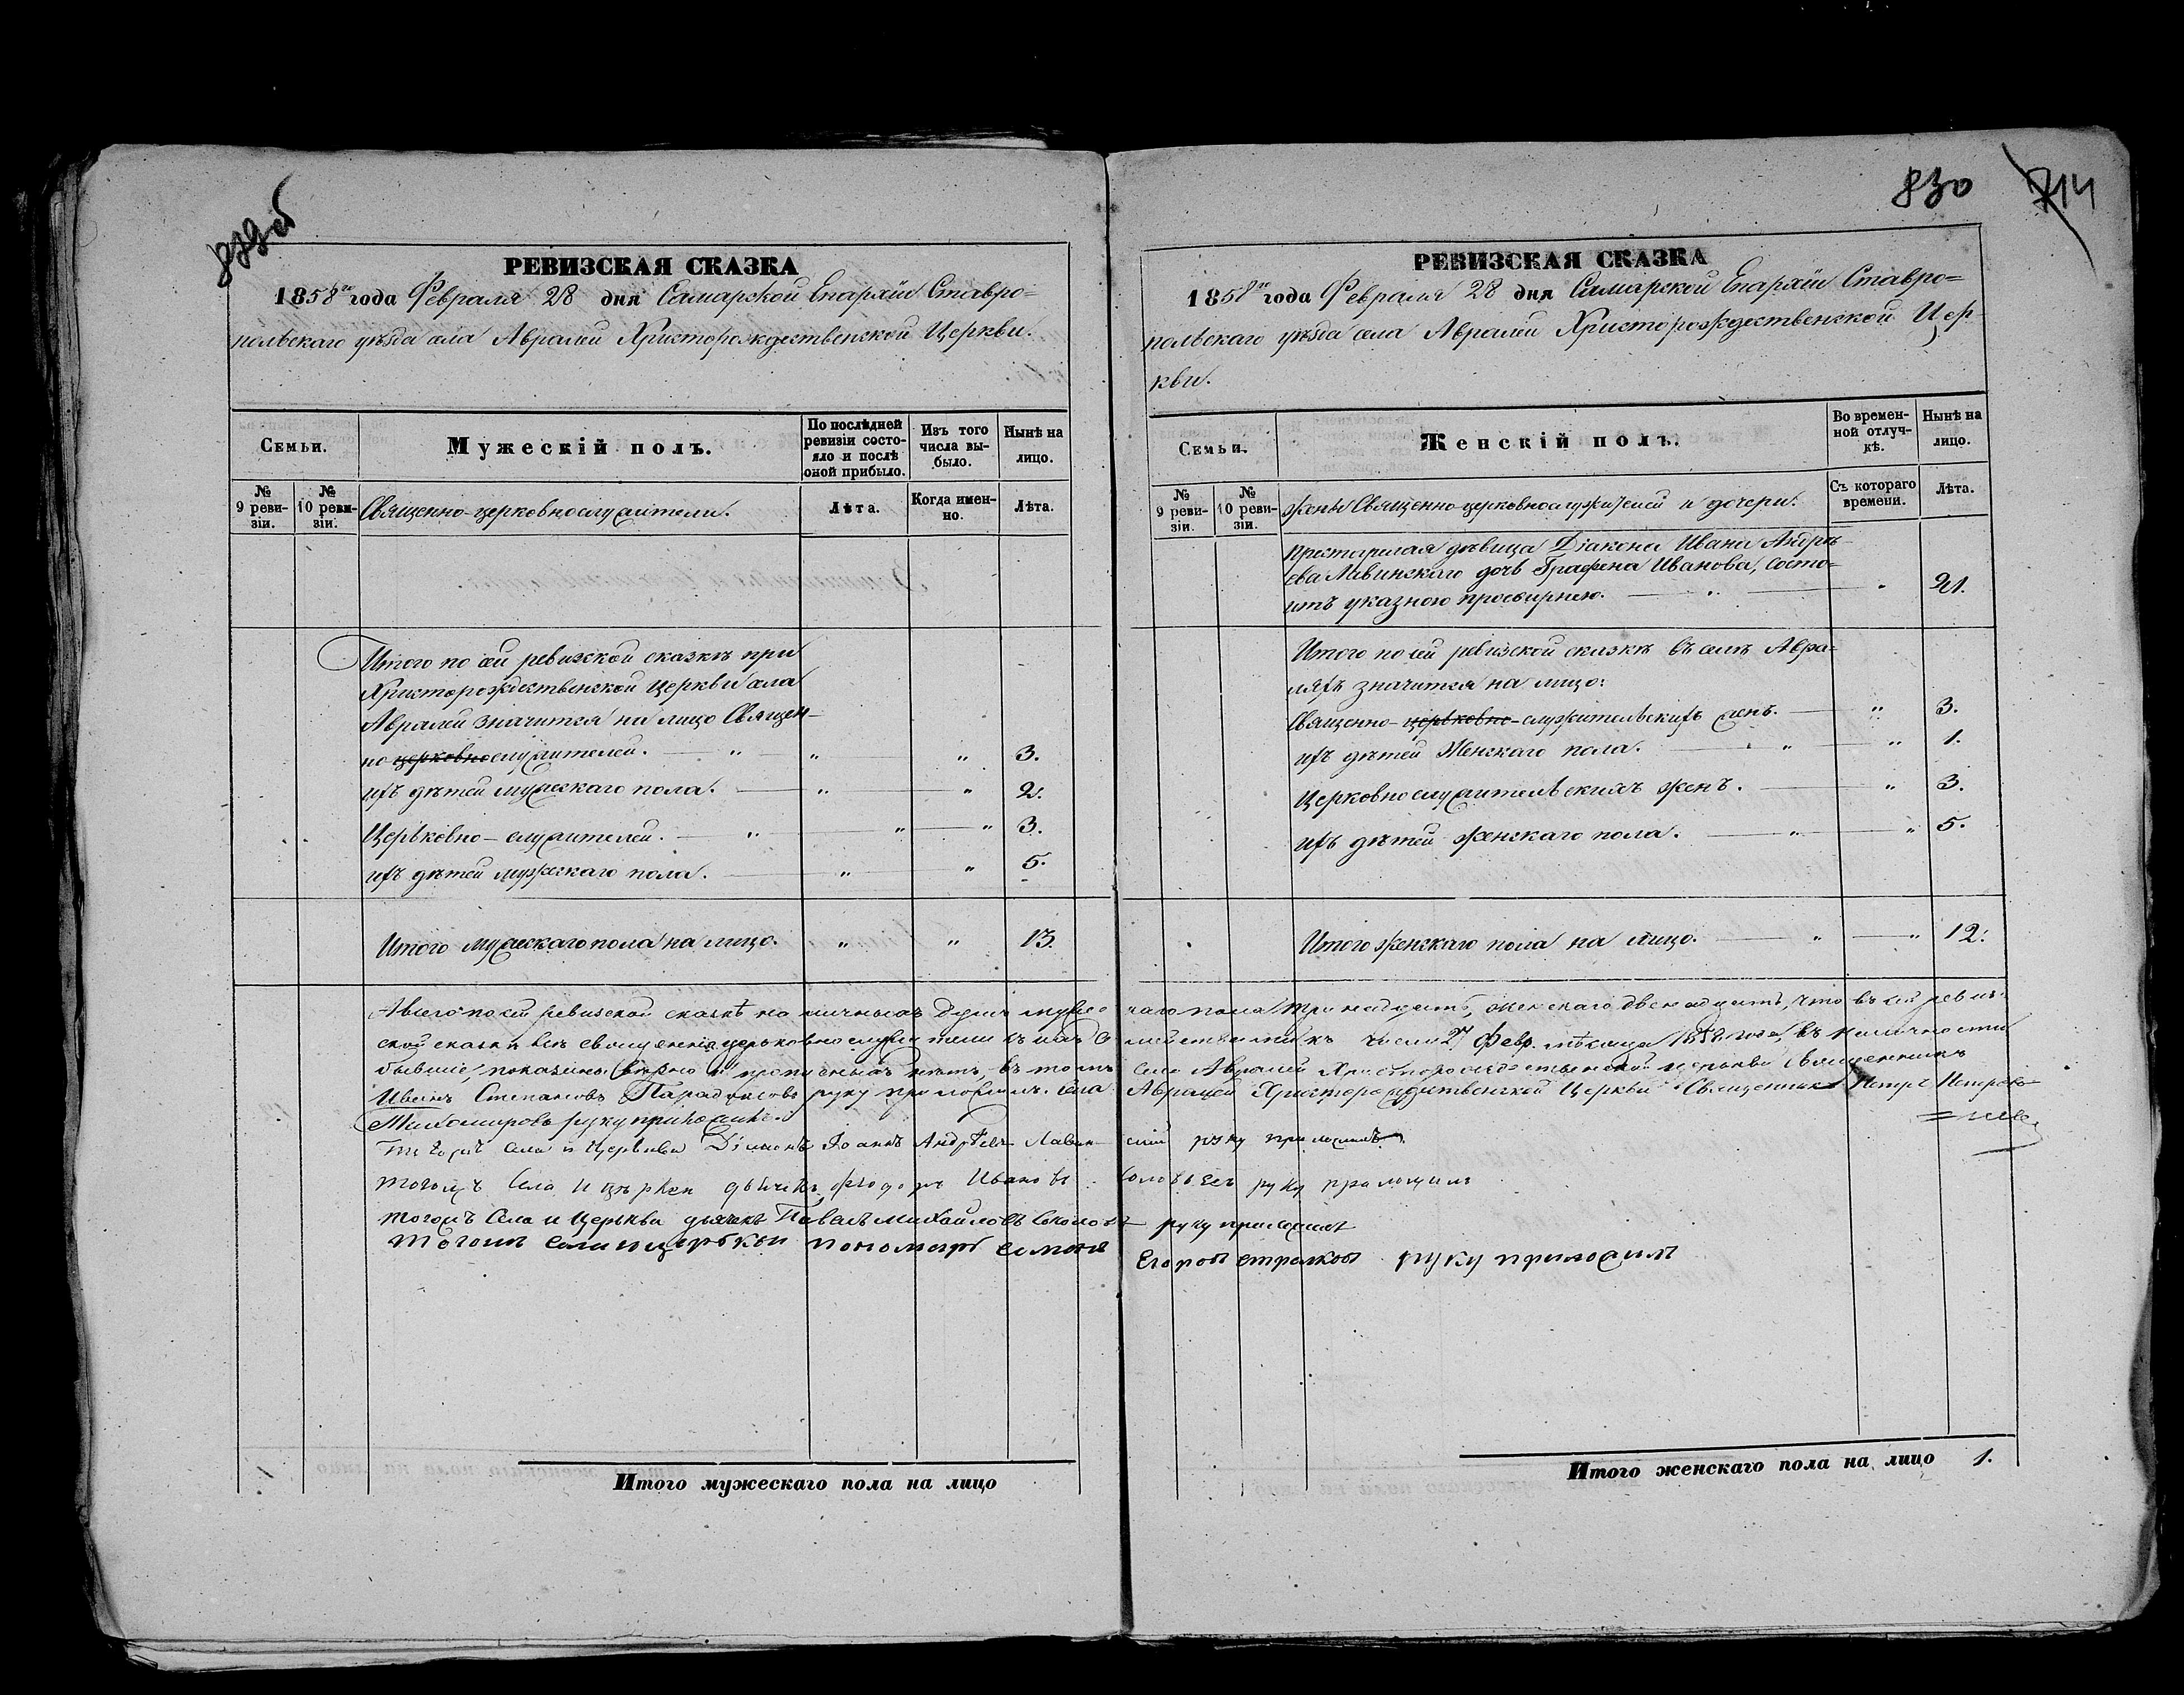 829об
РЕВИЗСКАЯ СКАЗКА
1858го года Февраля 28 дня Самарской Епархіи Ставро=
польскаго уѣзда села Авралей Христорождественской Церкви.
Семьи.
Мужескій полъ.
По послѣдней ревизіи состояло и послѣ оной прибыло.
Изъ того числа выбыло.
Нынѣ на лицо.
№ 9 ревизіи.
№ 10 ревизіи.
Священно-церковнослужители.
Лѣта.
Когда именно.
Лѣта.
Итого по сей ревизской сказкѣ при
Христорождественской Церкви села
Авралей значится на лицо Священ-
но церковнослужителей. " " " 3.
ихъ дѣтей мужескаго пола. " " 2.
Церьковно-служителей. " " " 3.
ихъ дѣтей мужескаго пола. " " 5.
Итого мужескаго пола на лицо. " " 13.
Итого мужескаго пола на лицо
830 714
РЕВИЗСКАЯ СКАЗКА
1858го года Февраля 28 дня Самарской Епархіи Ставро=
польскаго уѣзда села Авралей Христорождественской Цер
кви.
Семьи.
Женскій полъ.
Во временной отлучкѣ.
Нынѣ на лицо.
№ 9 ревизіи.
№ 10 ревизіи.
Жены Священно-церковнослужителей и дочери.
Съ котораго времени.
Лѣта.
Престарелая дѣвица Діакона Ивана Андрѣ-
ева Лавинскаго дочь Графена Иванова, состо=
итъ указною просвирнею. " " 21.
Итого по сей ревизской сказкѣ въ селѣ Авра=
ляхъ значится на лицо:
Священно-церьковно-служительскихъ женъ. " 3.
ихъ дѣтей Женскаго пола. " " 1.
Церковнослужительскихъ женъ. " 3.
ихъ дѣтей женскаго пола. " " 5.
Итого женскаго пола на лицо. " " 12.
А всего по сей ревизской сказкѣ наличныхъ душъ мужес каго пола тринадцать, женскаго двенадцать, что въ сей ревиз-
ской сказкѣ всѣ священно церьковнослужители съ ихъ семействами къ числу 27 Февр. мѣсяца 1858 года, въ наличности
бывшіе, показаны вѣрно и прописныхъ нѣтъ, въ томъ села Авралей Христорождественской церькви Священникъ
Иванъ Степановъ Парадоксовъ руку приложилъ. Села Авралей Христорождественской Церкви Священникъ Петръ Петровъ
Тихомировъ руку приложилъ.
Тогожъ села и Церькви Діаконъ Іоаннъ Андрѣевъ Лавинскій руку приложилъ
тогожъ Села и церкви дьячекъ Федоръ Ивановъ Соловьевъ руку приложилъ
тогожъ Села и Церькви дьячекъ Павелъ Михайловъ Соколовъ руку приложилъ
тогожъ села и церькви пономарь Семенъ Егоровъ Стралковъ руку приложилъ
Итого женскаго пола на лицо 1.